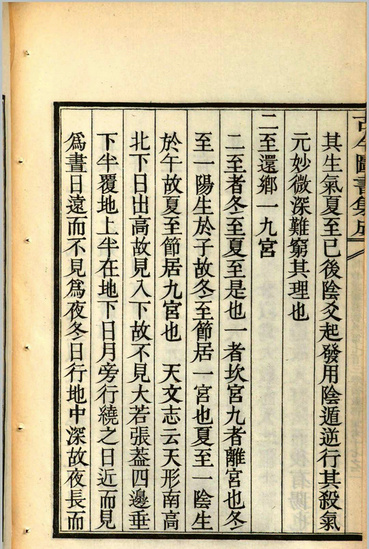 古今圖書集成
其生氣夏至已後陰爻起發用陰遁逆行其殺氣
元妙微深難窮其理也
二至還鄉一九宮
二至者冬至夏至是也一者坎宮九者離宮也冬
至一陽生於子故冬至節居一宮也夏至一陰生
於午故夏至節居九宮也　天文志云天形南高
北下日出高故見入下故不見大若張蓋四邊垂
下半覆地上半在地下日月旁行繞之日近而見
爲晝日遠而不見爲夜冬日行地中深故夜長而